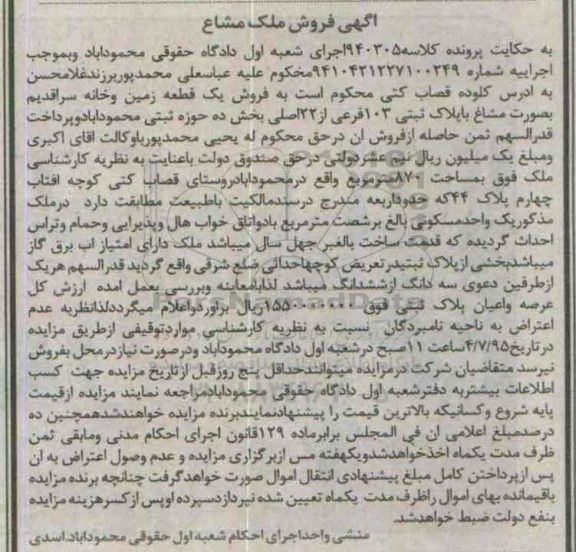 آگهی فروش ملک مشاع
به حکایت پرونده کلاسه۹۴۰۳۰۵اجرای شعبه اول دادگاه حقوقی محموداباد وبموجب
اجراییه شماره ۹۴۱۰۴۲۱۲۲۷۱۰۰۲۴۹محکوم علیه عباسعلی محمدپورپرزندغلامحسن
به ادرس کلوده قصاب کتی محکوم است به فروش یک قطعه زمین وخانه سراقدیم
بصورت مشاع باپلاک ثبتی ۱۰۳فرعی از۲۲اصلی بخش ده حوزه ثبتی محمودابادوپرداخت
قدرالسهم ثمن حاصله ازفروش ان درحق محکوم له یحیی محمدپورباوکالت اقای اکبری
ومبلغ یک میلیون ریال نیم عشردولتی درحق صندوق دولت باعنایت به نظریه کارشناسی
ملک فوق بمساحت ۸۷۰مترمربع واقع درمحمودابادروستای قصاب کتی کوچه افتاب
چهارم پلاک ۴۴که حدوداربعه مندرج درسندمالکیت باطبیعت مطابقت دارد درملک
مذکوریک واحدمسکونی بالغ برشصت مترمربع بادواتاق خواب هال وپذیرایی وحمام وتراس
احداث گردیده که قدمت ساخت بالغبر چهل سال میباشد ملک دارای امتیاز اب برق گاز
میباشدبخشی ازپلاک ثبتیدرتعریض کوچهاحداثی ضلع شرقی واقع گردید قدرالسهم هریک
ازطرفین دعوی سه دانگ ازششدانگ میباشد لذابامعاینه وبررسی بعمل امده ارزش کل
عرصه واعیان پلاک ثبتی فوق ریال براوردواعلام میگرددلذانظربه عدم
اعتراض به ناحیه نامبردگان نسبت به نظریه کارشناسی مواردتوقیفی ازطریق مزایده
درتاریخ۴/۷/۹۵ساعت ۱۱صبح درشعبه اول دادگاه محموداباد ودرصورت نیازدرمحل بفروش
نیرسد متقاضیان شرکت درمزایده میتوانندحداقل پنج روزقبل ازتاریخ مزایده جهت کسب
اطلاعات بیشتربه دفترشعبه اول دادگاه حقوقی محمودابادمراجعه نمایند مزایده ازقیمت
پایه شروع وکسانیکه بالاترین قیمت را پیشنهادنمایندبرنده مزایده خواهندشدهمچنین ده
درصدمبلغ اعلامی ان فی المجلس برابرماده ۱۲۹قانون اجرای احکام مدنی ومابقی ثمن
ظرف مدت یکماه اخذخواهدشدویکهفته مس ازبرگزاری مزایده و عدم وصول اعتراض به ان
پس ازپرداختن کامل مبلغ پیشنهادی انتقال اموال صورت خواهدگرفت چنانچه برنده مزایده
باقیمانده بهای اموال راظرف مدت یکماه تعیین شده نپردازدسپرده اوپس ازکسرهزینه مزایده
بنفع دولت ضبط خواهدشد.
منشی واحداجرای احکام شعبه اول حقوقی محموداباد.اسدی